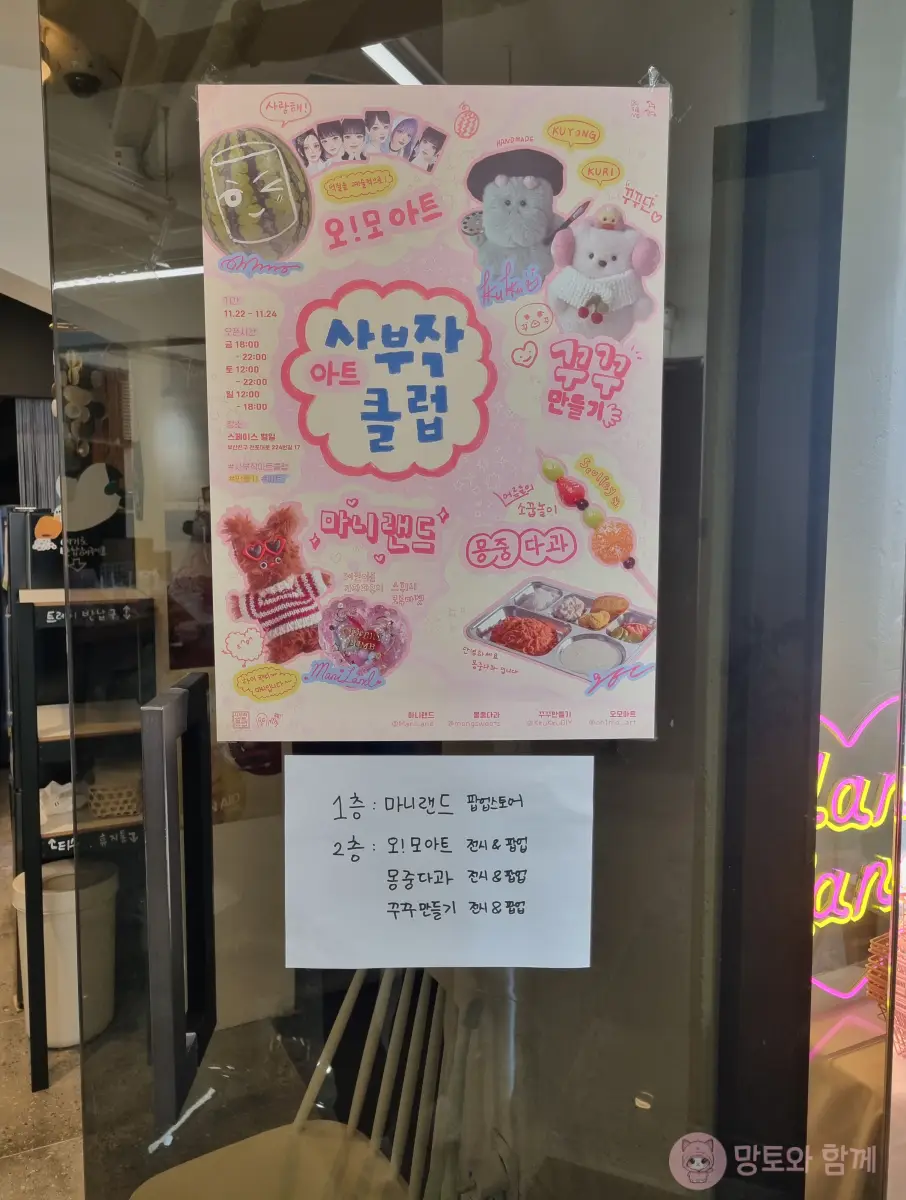 사랑해!
오!모아트
HANDMADE
KUYONG
KURI
꾸꾸단
KuKu
기간
11.22 - 11.24
오픈시간
금 16:00
- 22:00
토 12:00
- 22:00
일 12:00
- 18:00
장소
사부작
아트
클럽
꾸꾸
만들기
#사부작아트클럽
마니랜드
ManiLand
소꿉놀이
몽중다과
안녕하세요
몽중다과 입니다
마니랜드
몽중다과
꾸꾸만들기
오모아트
1층 : 마니랜드 팝업스토어
2층 : 오!모아트 전시 & 팝업
몽중다과 전시 & 팝업
꾸꾸만들기 전시 & 팝업
트레이 반납구
망토와 함께